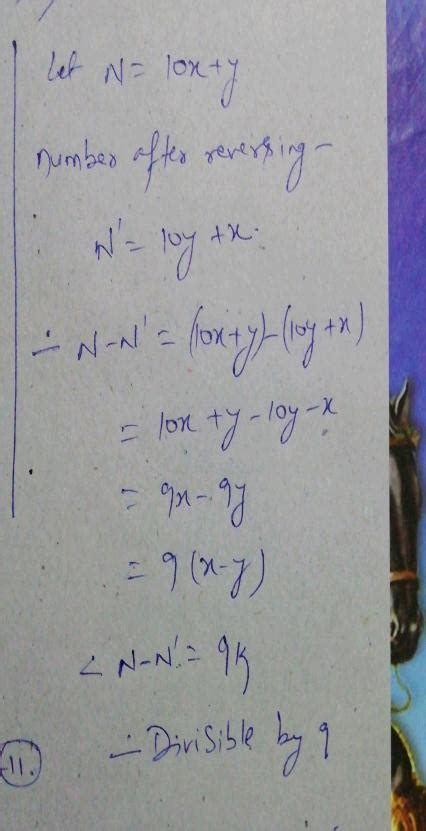 Let N = 10x+y
Number after reversing -
N' = 10y +x.
∴ N-N' = (10x+y)-(10y+x)
= 10x +y -10y -x
= 9x - 9y
= 9 (x-y)
∠ N-N' = 9k
∴ Divisible by 9
11.